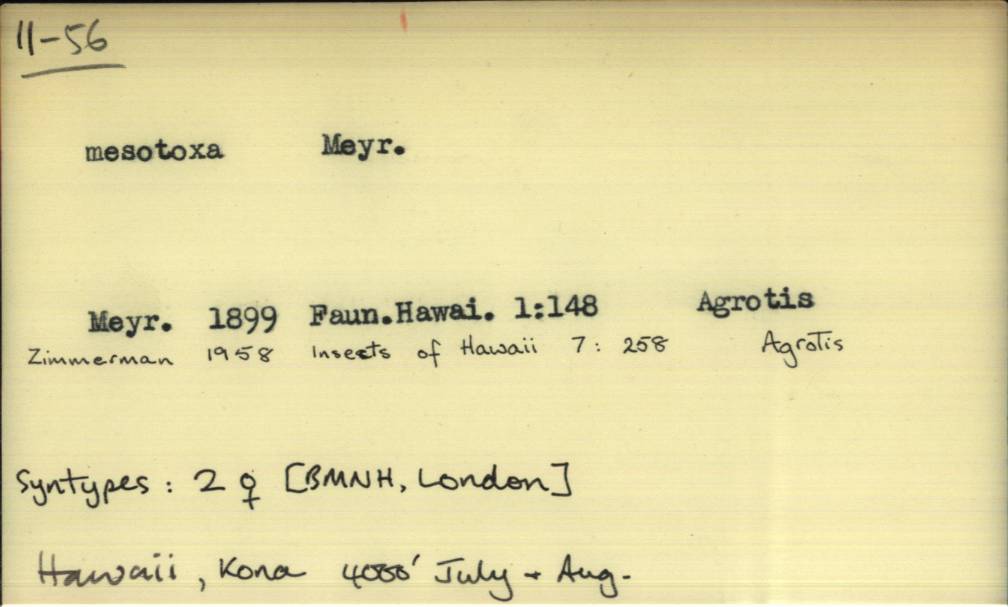 11-56
mesotoxa Meyr.
Meyr. 1899 Faun.Hawai. 1:148 Agrotis
Zimmerman 1958 Insects of Hawaii 7: 258 Agrotis
Syntypes: 2 ♀ [BMNH, London]
Hawaii, Kona 4000' July + Aug.